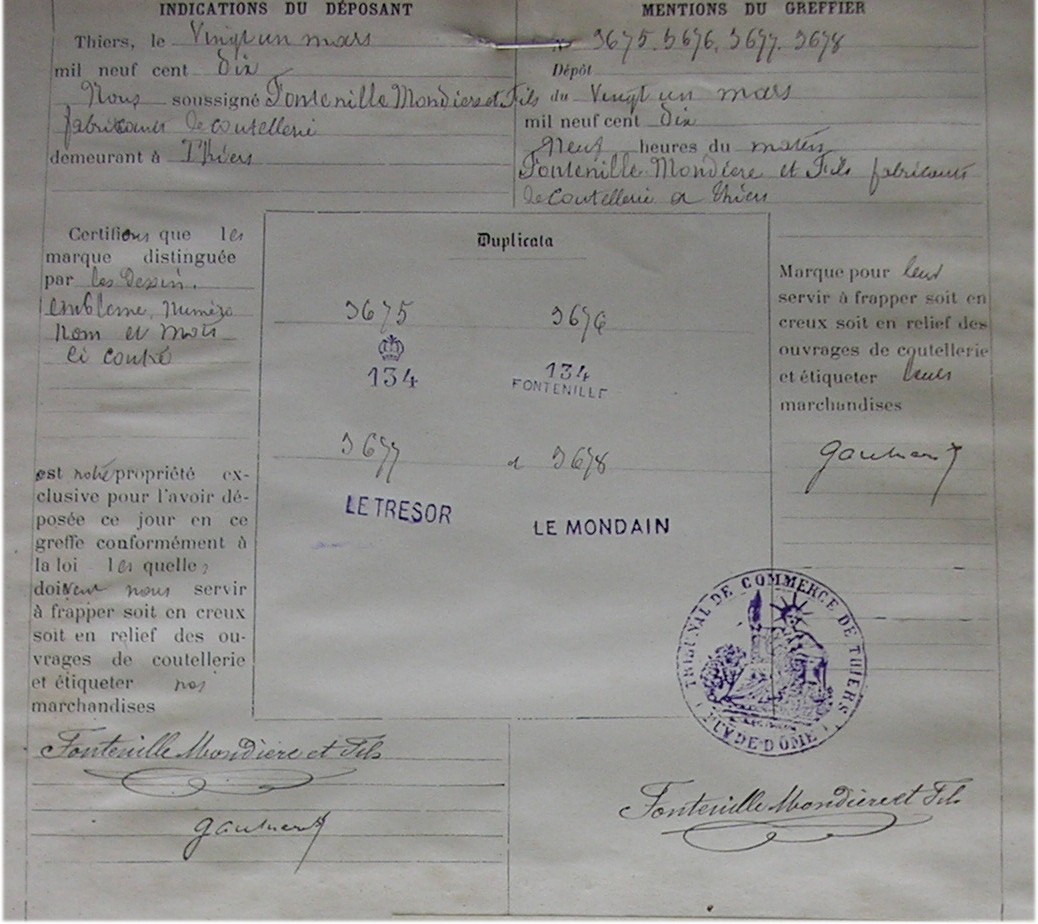 INDICATIONS DU DÉPOSANT
Thiers, le Vingt un mars
mil neuf cent Dix
Nous soussigné Fontenille Mondiere et Fils
fabricants de coutellerie
demeurant à Thiers
Certifions que les
marque distinguée
par les Dessin,
embleme, Numéro
Nom et Mots
ci contre
est notre propriété ex-
clusive pour l'avoir dé-
posée ce jour en ce
greffe conformément à
la loi les quelles
doivent nous servir
à frapper soit en creux
soit en relief des ou-
vrages de coutellerie
et étiqueter nos
marchandises
Fontenille Mondière et Fils
Duplicata
3675 3676
134 134
FONTENILLE
3677 et 3678
LE TRESOR LE MONDAIN
MENTIONS DU GREFFIER
N° 3675. 3676. 3677. 3678
Dépôt
du Vingt un mars
mil neuf cent Dix
Neuf heures du matin
Fontenille Mondiere et Fils fabricants
de coutellerie a Thiers
Marque pour leur
servir à frapper soit en
creux soit en relief des
ouvrages de coutellerie
et étiqueter leurs
marchandises
TRIBUNAL DE COMMERCE DE THIERS
PUY DE DÔME
Fontenille Mondière et Fils